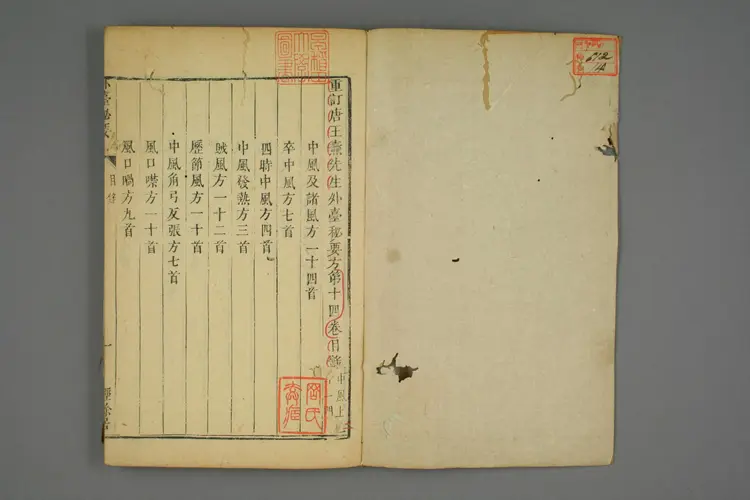 重訂唐王燾先生外臺秘要方第十四卷目錄
中風上
中風及諸風方一十四首
卒中風方七首
四時中風方四首
中風發熱方三首
賊風方一十二首
歷節風方一十首
中風角弓反張方七首
風口噤方一十首
風口喎方九首
目錄
一